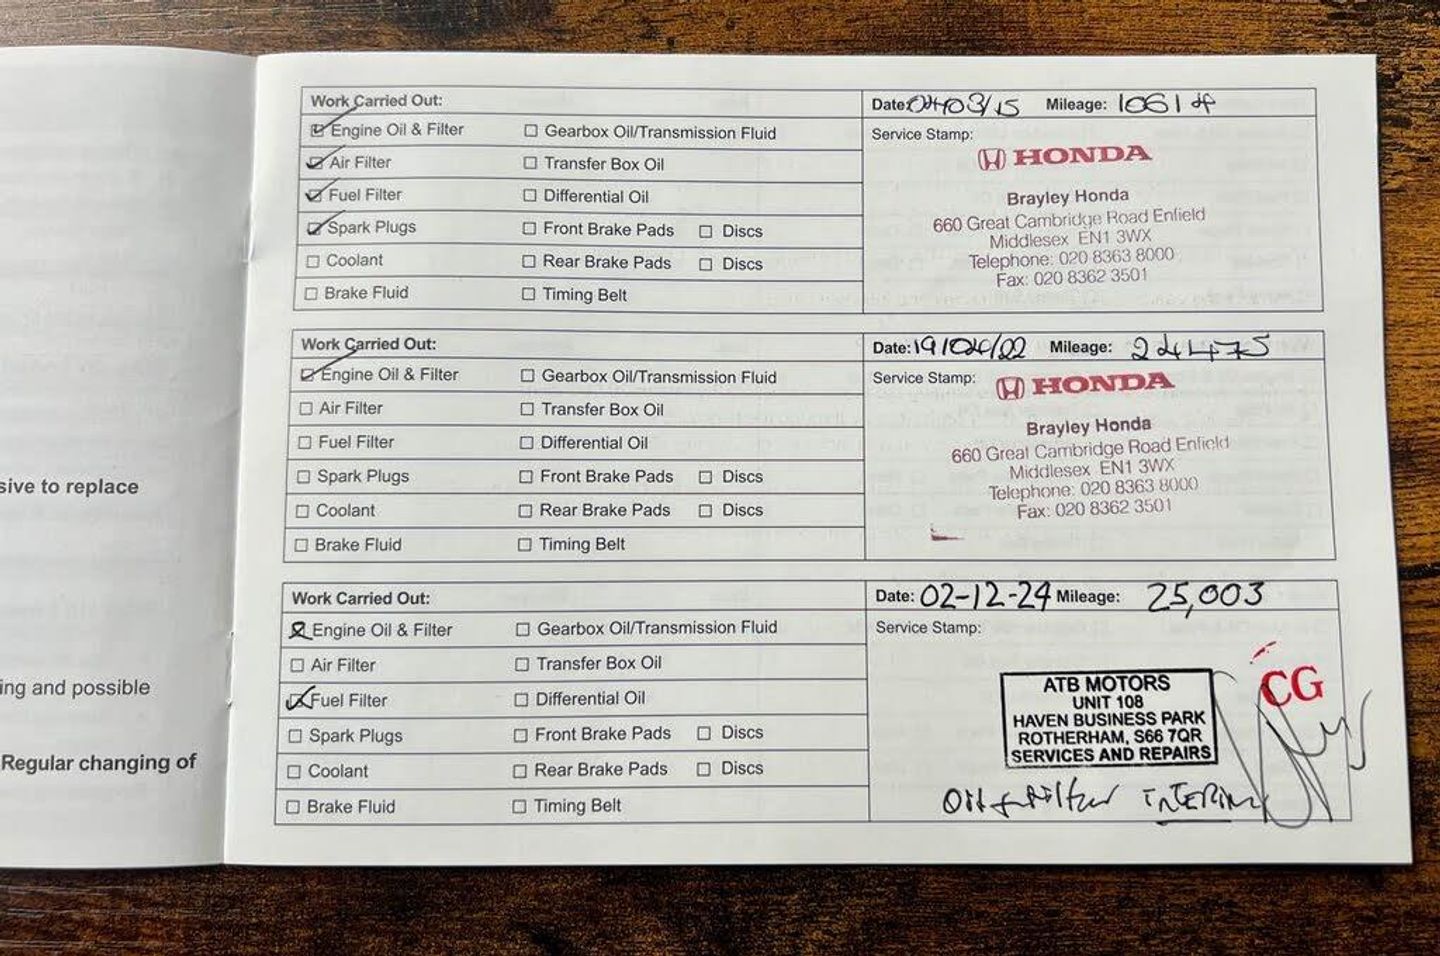 sive to replace
ing and possible
Regular changing of
Work Carried Out:
Date: 04/03/15 Mileage: 10614
☑ Engine Oil & Filter ☐ Gearbox Oil/Transmission Fluid
Service Stamp:
☑ Air Filter ☐ Transfer Box Oil
☑ Fuel Filter ☐ Differential Oil
☑ Spark Plugs ☐ Front Brake Pads ☐ Discs
☐ Coolant ☐ Rear Brake Pads ☐ Discs
☐ Brake Fluid ☐ Timing Belt
HONDA
Brayley Honda
660 Great Cambridge Road Enfield
Middlesex EN1 3WX
Telephone: 020 8363 8000
Fax: 020 8362 3501
Work Carried Out:
Date: 19/04/22 Mileage: 24475
☑ Engine Oil & Filter ☐ Gearbox Oil/Transmission Fluid
Service Stamp:
☐ Air Filter ☐ Transfer Box Oil
☐ Fuel Filter ☐ Differential Oil
☐ Spark Plugs ☐ Front Brake Pads ☐ Discs
☐ Coolant ☐ Rear Brake Pads ☐ Discs
☐ Brake Fluid ☐ Timing Belt
HONDA
Brayley Honda
660 Great Cambridge Road Enfield
Middlesex EN1 3WX
Telephone: 020 8363 8000
Fax: 020 8362 3501
Work Carried Out:
Date: 02-12-24 Mileage: 25,003
☑ Engine Oil & Filter ☐ Gearbox Oil/Transmission Fluid
Service Stamp:
☐ Air Filter ☐ Transfer Box Oil
☑ Fuel Filter ☐ Differential Oil
☐ Spark Plugs ☐ Front Brake Pads ☐ Discs
☐ Coolant ☐ Rear Brake Pads ☐ Discs
☐ Brake Fluid ☐ Timing Belt
CG
ATB MOTORS
UNIT 108
HAVEN BUSINESS PARK
ROTHERHAM, S66 7QR
SERVICES AND REPAIRS
Oil + filter INTERIM